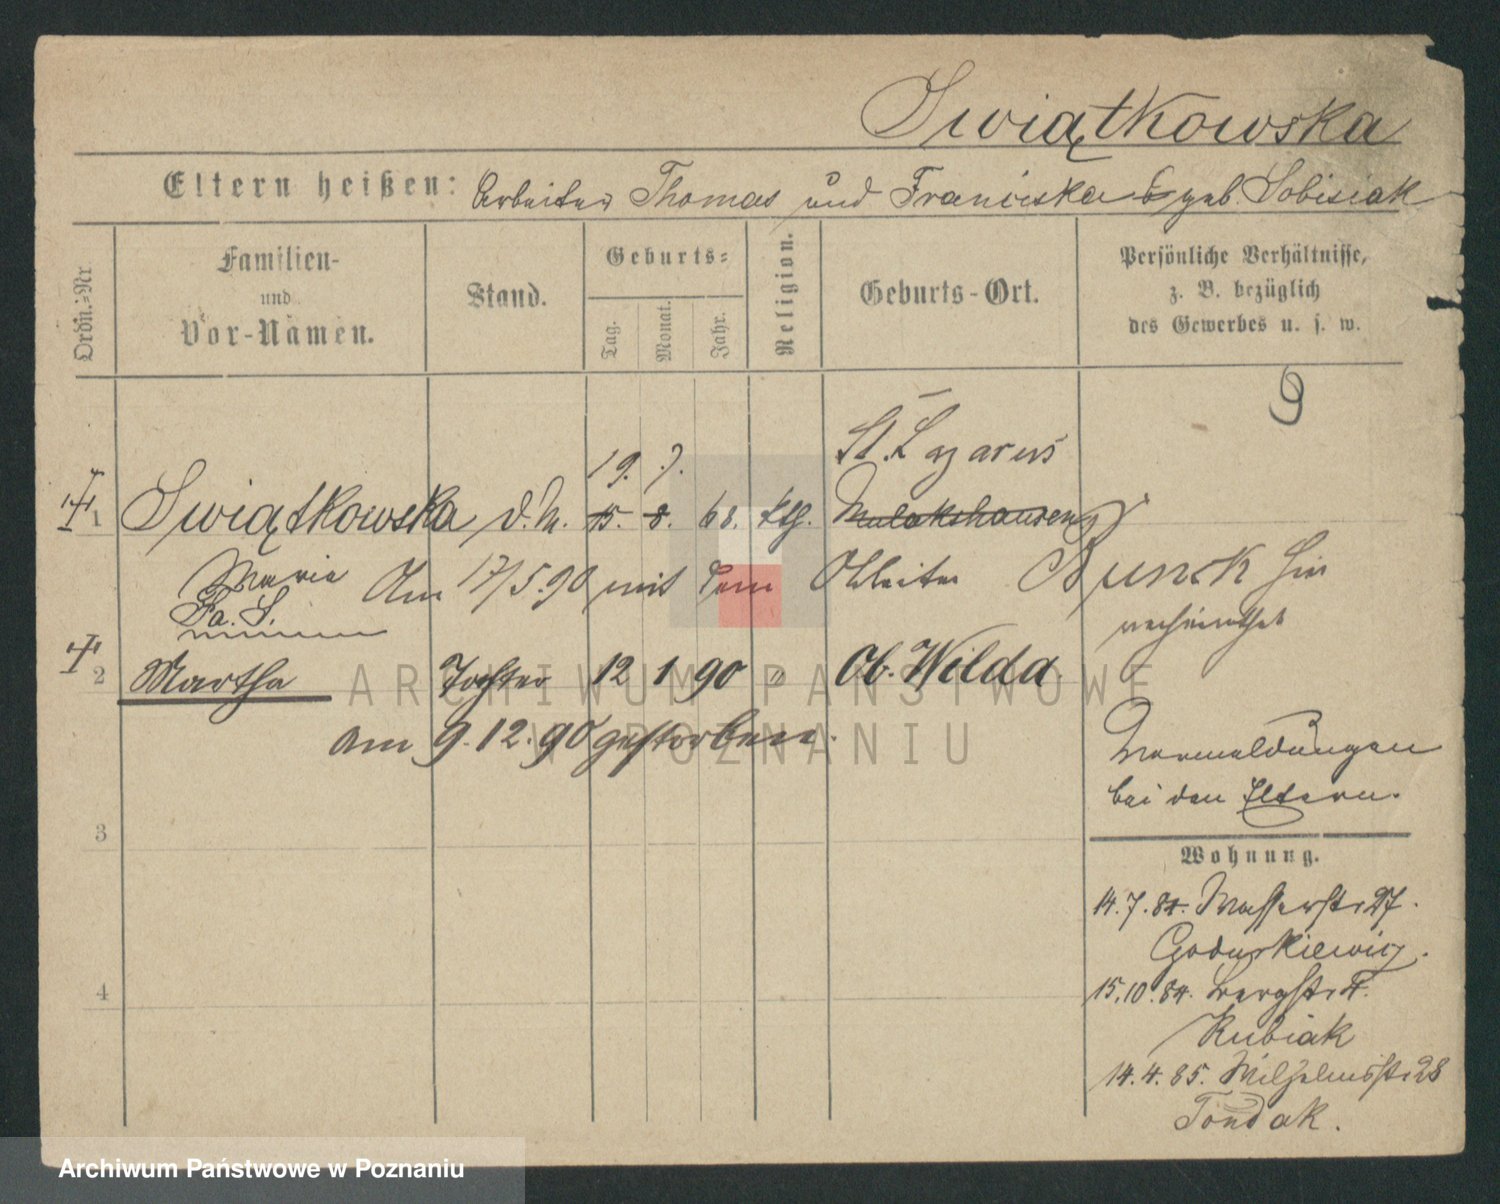 Swiątkowska
Eltern heißen: Arbeiter Thomas und Franciska geb. Sobisiak
Ordn.-Nr
Familien-
und
Vor-Namen.
Stand.
Geburts-
Tag.
Monat.
Jahr.
Religion.
Geburts-Ort.
Persönliche Verhältnisse,
z. B. bezüglich
des Gewerbes u. s. w.
St. Lazarus
19. 7.
1 Swiątkowska d. M. 15. 8. 68. kth.
Marie Am 17/5.90 mit dem Arbeiter Bunck hier
verheirathet
2 Martha Tochter 12 1 90 " Ob. Wilda
am 9.12.90 gestorben.
Vormeldungen
bei den Eltern.
3
4
Wohnung.
14.7.84. Wasserstr 27.
15.10.84. Bergstr 4.
Kubiak
14.4.85. Wilhelmsstr 28
Tondak.
ARCHIWUM PAŃSTWOWE
W POZNANIU
Archiwum Państwowe w Poznaniu